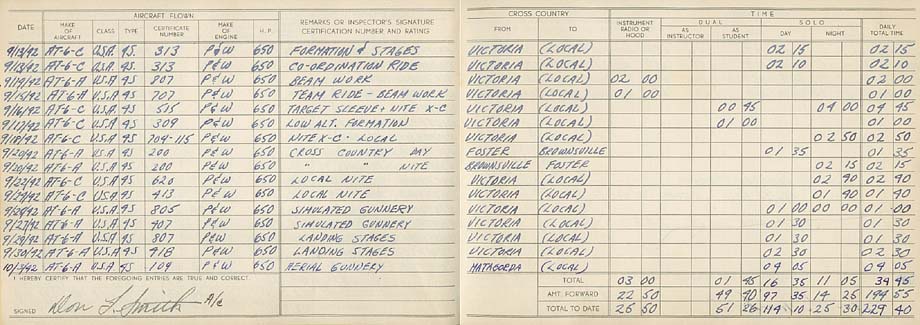 AIRCRAFT FLOWN
DATE MAKE OF AIRCRAFT CLASS TYPE CERTIFICATE NUMBER MAKE OF ENGINE H.P. REMARKS OR INSPECTOR'S SIGNATURE CERTIFICATION NUMBER AND RATING
9/13/42 AT-6-C U.S.A. 4S. 313 P&W 650 FORMATION & STAGES
9/13/42 AT-6-C U.S.A. 4S. 313 P&W 650 CO-ORDINATION RIDE
9/14/42 AT-6-A U.S.A 4S 907 P&W 650 BEAM WORK
9/15/42 AT-6-A U.S.A. 4S. 707 P&W 650 TEAM RIDE - BEAM WORK
9/16/42 AT-6-C U.S.A. 4S 535 P&W 650 TARGET SLEEVE + NITE X-C
9/17/42 AT-6-C U.S.A. 4S 309 P&W 650 LOW ALT. FORMATION
9/18/42 AT-6-C U.S.A 4S 704-115 P&W 650 NITE X-C - LOCAL
9/20/42 AT-6-A U.S.A 4S 200 P&W 650 CROSS COUNTRY DAY
9/20/42 AT-6-A U.S.A 4S 200 P&W 650 " " NITE
9/22/42 AT-6-C U.S.A 4S 620 P&W 650 LOCAL NITE
9/24/42 AT-6-C U.S.A 4S 413 P&W 650 LOCAL NITE
AT-6-A U.S.A. 4S 805 P&W 650 SIMULATED GUNNERY
9/27/42 AT-6-A U.S.A. 4S 407 P&W 650 SIMULATED GUNNERY
9/29/42 AT-6-A U.S.A 4S 807 P&W 650 LANDING STAGES
9/30/42 AT-6-A U.S.A 4S 918 P&W 650 LANDING STAGES
AT-6-A U.S.A 4S 104 P&W 650 AERIAL GUNNERY
I HEREBY CERTIFY THAT THE FOREGOING ENTRIES ARE TRUE AND CORRECT.
SIGNED Don L. Smith A/c
CROSS COUNTRY TIME
FROM TO INSTRUMENT RADIO OR HOOD DUAL AS INSTRUCTOR AS STUDENT SOLO DAY NIGHT DAILY TOTAL TIME
VICTORIA (LOCAL) 02 15 02 15
VICTORIA (LOCAL) 02 10 02 10
VICTORIA (LOCAL) 02 00 02 00
VICTORIA (LOCAL) 01 00 01 00
VICTORIA (LOCAL) 00 45 04 00 04 45
VICTORIA (LOCAL) 01 00 01 00
VICTORIA (LOCAL) 02 50 02 50
FOSTER BROWNSVILLE 01 35 01 35
BROWNSVILLE FOSTER 02 15 02 15
VICTORIA (LOCAL) 02 40 02 40
VICTORIA (LOCAL) 01 40 01 40
VICTORIA (LOCAL) 01 00 00 00 01 00
VICTORIA (LOCAL) 01 30 01 30
VICTORIA (LOCAL) 01 30 01 30
VICTORIA (LOCAL) 02 30 02 30
MATAGORDA (LOCAL) 04 05 04 05
TOTAL 03 00 01 45 16 35 11 05 34 45
AMT. FORWARD 22 50 97 35 14 25 55
TOTAL TO DATE 25 50 51 25 114 10 25 30 229 40